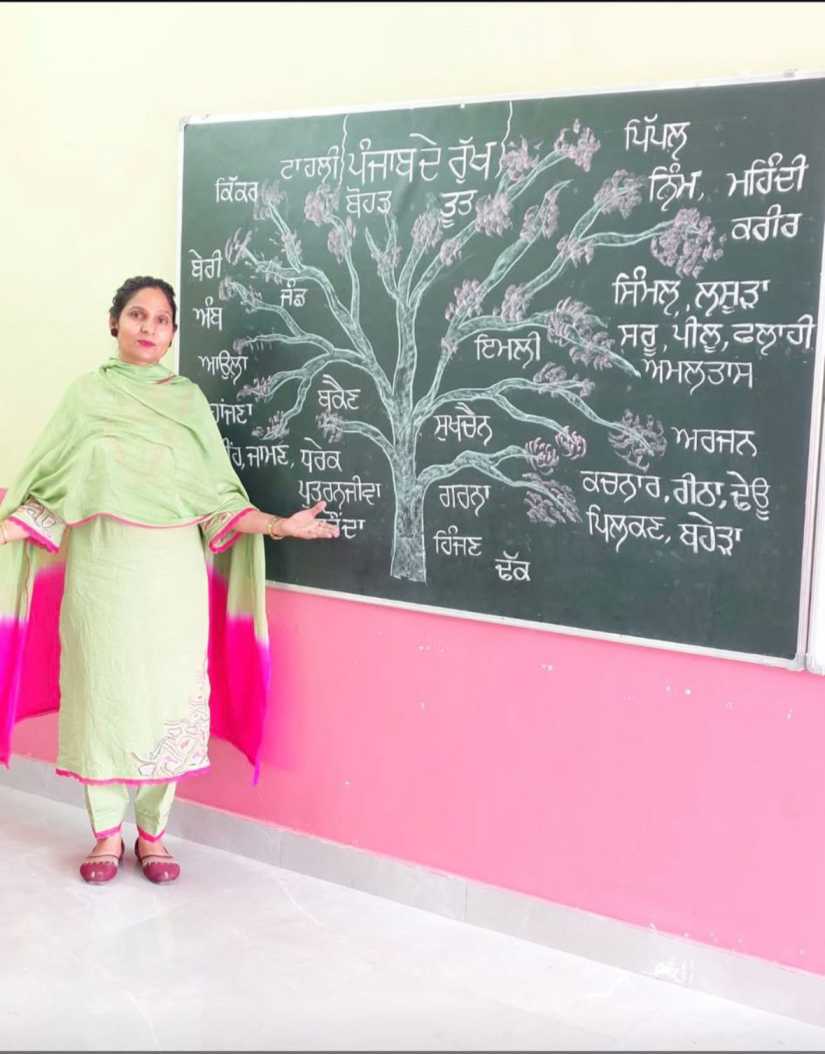 ਪੰਜਾਬ ਦੇ ਰੁੱਖ
ਟਾਹਲੀ
ਕਿੱਕਰ
ਬੋਹੜ
ਤੂਤ
ਪਿੱਪਲ੍ਹ
ਨਿੰਮ, ਮਹਿੰਦੀ
ਕਰੀਰ
ਬੇਰੀ
ਜੰਡ
ਅੰਬ
ਸਿੰਮਲ੍ਹ, ਲਸੂੜਾ
ਸਰੂ, ਪੀਲੂ, ਫਲਾਹੀ
ਅਮਲਤਾਸ
ਇਮਲੀ
ਆਉਲਾ
ਬਕੈਣ
ਸੁਖਚੈਨ
ਅਰਜਨ
ਜਾਮਣ, ਧਰੇਕ
ਪੁਤਰਨਜੀਵਾ
ਗਰਨਾ
ਕਚਨਾਰ, ਰੀਠਾ, ਢੇਊ
ਪਿਲਕਣ, ਬਹੇੜਾ
ਹਿੰਜਣ
ਢੱਕ